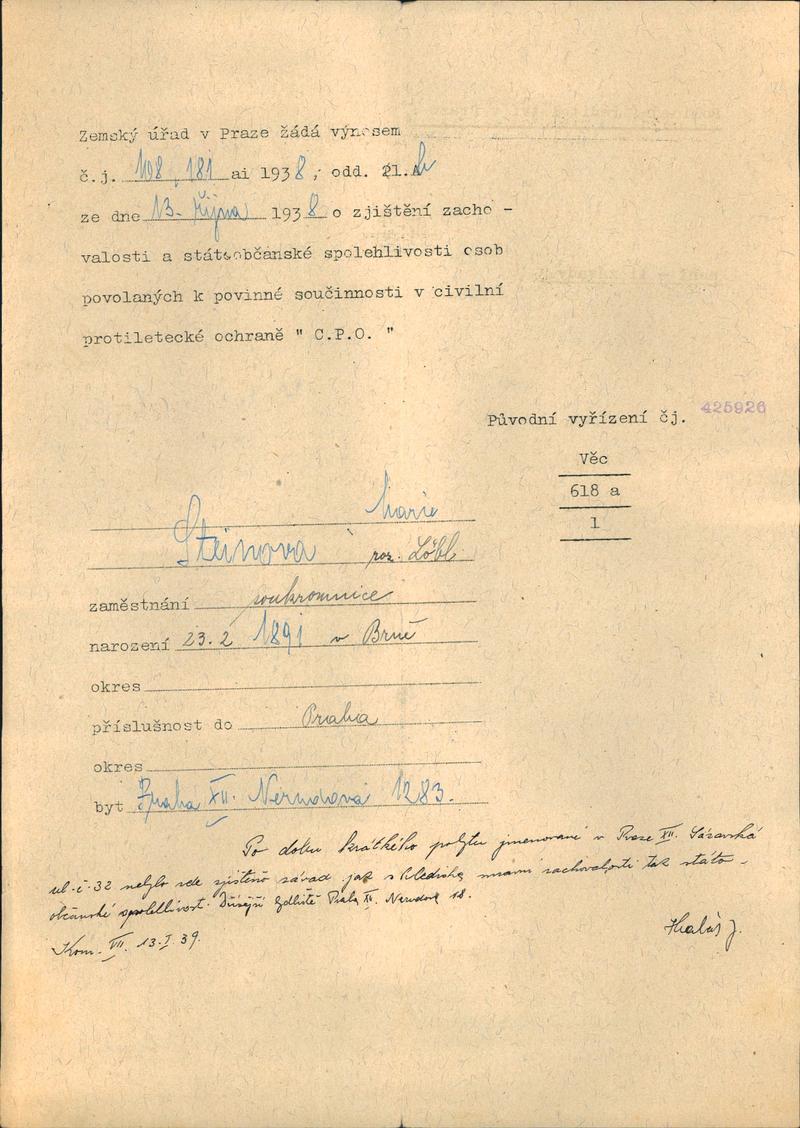 Zemský úřad v Praze žádá výnosem
č.j. 108.181 ai 1938, odd. 21.
ze dne 13. října 1938 o zjištění zacho -
valosti a státoobčanské spolehlivosti osob
povolaných k povinné součinnosti v civilní
protiletecké ochraně " C.P.O. "
Původní vyřízení čj. 425926
Věc
618 a
1
Marie
Steinova roz. Löbl
zaměstnání soukromnice
narození 23.2 1891 v Brně
okres
příslušnost do Praha
okres
byt Praha XII. Nerudova 1283.
Po dobu krátkého pobytu jmenované v Praze XII. Sázavská
ul. č. 32 nebylo zde zjištěno závad jak s hlediska mravní zachovalosti tak státo -
občanské spolehlivosti. Dřívější bydliště Praha Nerudova 18.
Kom. VII. 13.I.39. Halás J.